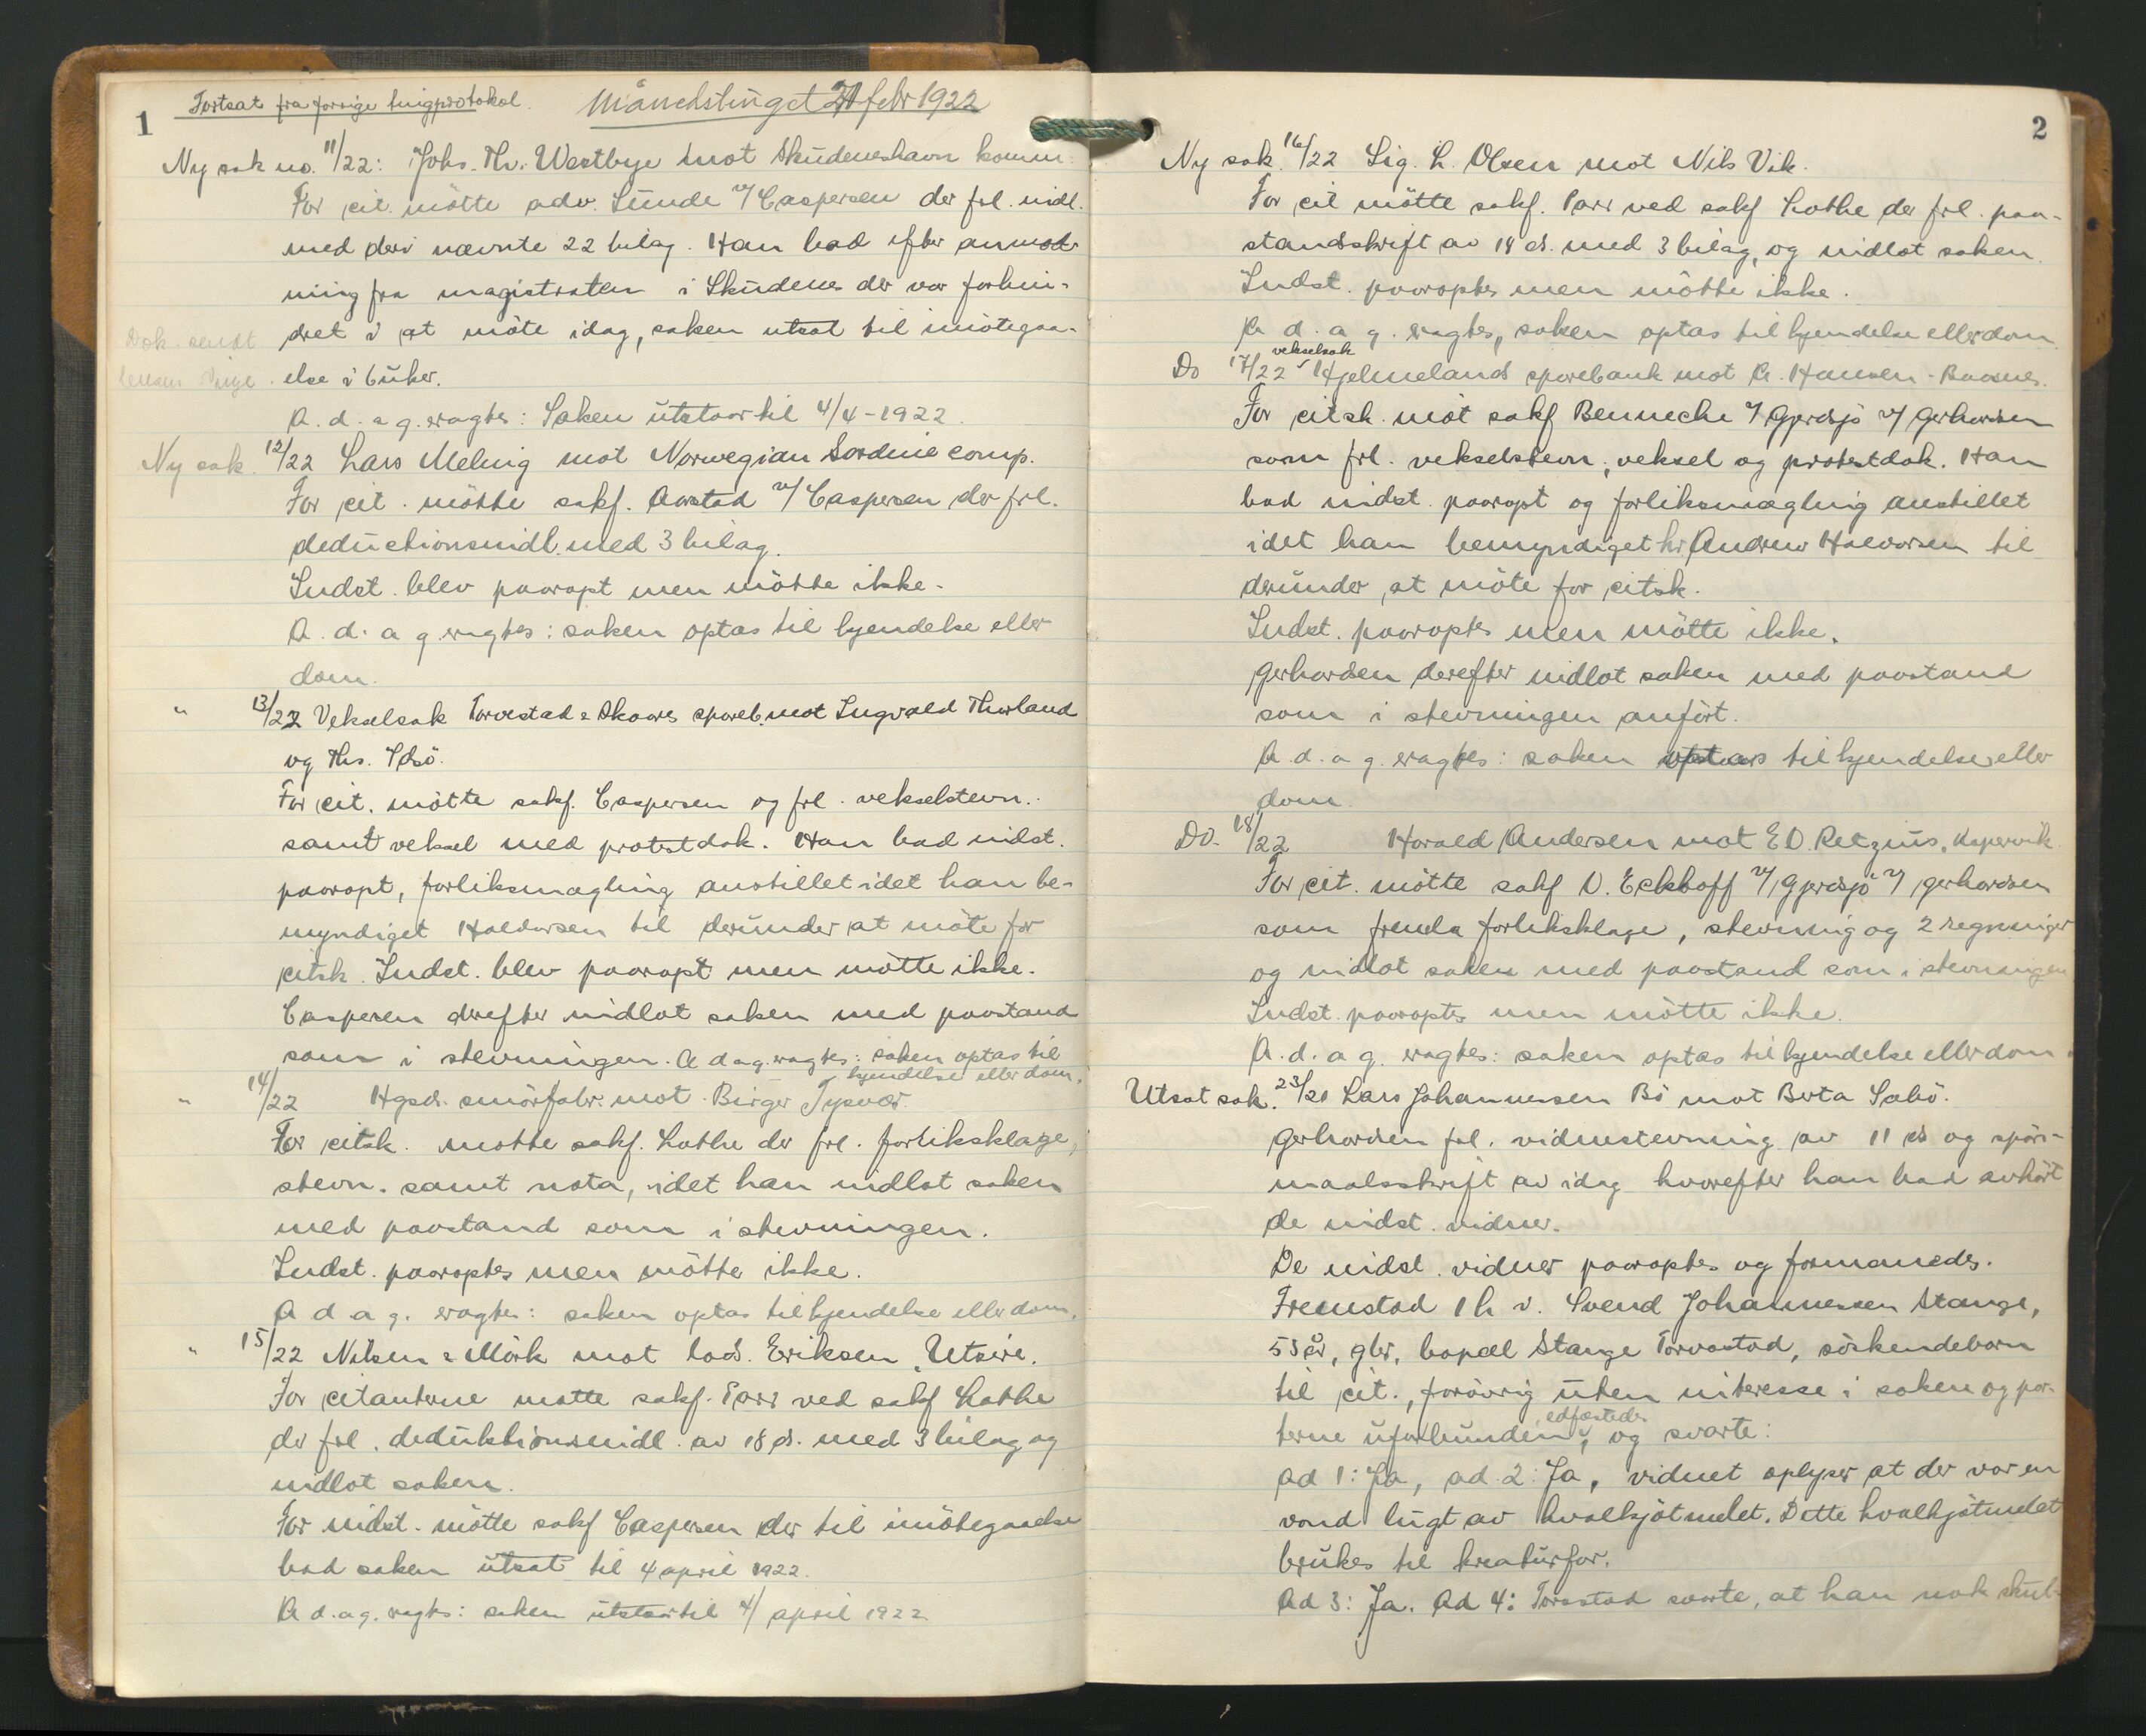 1
Fortsat fra forrige tingprotokol.
Månedstinget 21 febr 1922
Ny sak no. 11/22: Johs. Th. Westbye mot Skudeneshavn komm.
For cit. mötte adv. Sunde v/ Caspersen der frl. indl.
med deri nævnte 22 bilag. Han bad efter anmod-
ning fra magistraten i Skudenes der var forhin-
dret i at möte idag, saken utsat til imötegaa-
Dok. sendt
else i 6 uker.
A. d. a g. eragtes: Saken utstaar til 4/4-1922.
Ny sak. 12/22 Lars Meling mot Norwegian Sardine comp.
For cit. mötte sakf. Aarstad v/ Caspersen der frl.
deductionsindl. med 3 bilag.
Indst. blev paaropt men mötte ikke.
A. d. a g eragtes: saken optas til kjendelse eller
dom.
" 13/22 Vekselsak Torvestad & Skaares spareb. mot Ingvald Thorland
og Ths. Idsö.
For cit. mötte sakf. Caspersen og frl. vekselstevn.
samt veksel med protestdok. Han bad indst.
paaropt, forliksmægling anstillet idet han be-
myndiget Haldorsen til derunder at möte for
citsk. Indst. blev paaropt men mötte ikke.
Caspersen derefter indlot saken med paastand
som i stevningen. A d a g. eragtes: saken optas til
kjendelse eller dom.
" 14/22 Hgsds. smörfabr. mot Birger Tysvær.
For citsk. mötte sakf. Lothe der frl. forliksklage,
stevn. samt nota, idet han indlot saken
med paastand som i stevningen.
Indst. paaroptes men mötte ikke.
A d a g. eragtes: saken optas til kjendelse eller dom.
" 15/22 Nilsen & Mörk mot Lods. Eriksen, Utsire.
For citanterne mötte sakf. Parr ved sakf Lothe
der frl. deduktionsindl. av 18 ds. med 3 bilag og
indlot saken.
For indst. mötte sakf Caspersen der til imötegaaelse
bad saken utsat til 4 april 1922.
A d. a g. eragtes: saken utstaar til 4/ april 1922
2
Ny sak. 16/22 Sig. L. Olsen mot Nils Vik.
For cit mötte sakf. Parr ved sakf Lothe der frl. paa-
standskrift av 18 ds. med 3 bilag, og indlot saken.
Indst. paaroptes men mötte ikke.
A d. a g. eragtes, saken optas til kjendelse eller dom.
vekselsak
Do 17/22 Hjelmelands sparebank mot A. Hansen-Baasnes.
For citsk. möt sakf Benneche v/ Gjerdsjö v/ Gerhardsen
som frl. vekselstevn., veksel og protestdok. Han
bad indst. paaropt og forliksmægling anstillet
idet han bemyndiget hr. Andreas Halvorsen til
derunder at möte for citsk.
Indst. paaroptes men mötte ikke.
Gerhardsen derefter indlot saken med paastand
som i stevningen anfört.
A. d. a g. eragtes: saken optas til kjendelse eller
dom.
Do. 18/22 Harald Andersen mot E D. Retzius, Kopervik.
For cit. mötte sakf D. Eckhoff v/ Gjerdsjö v/ Gerhardsen
som fremla forliksklage, stevning og 2 regninger
og indlot saken med paastand som i stevningen
Indst. paaroptes men mötte ikke.
A. d. a g. eragtes: saken optas til kjendelse eller dom.
Utsat sak. 23/21 Lars Johannessen Bö mot Berta Sabö.
Gerhardsen frl. vidnestevning av 11 ds og spörs-
maalsskrift av idag hvorefter han bad avhört
de indst. vidner.
De indst. vidner paaroptes og formanedes.
Fremstod 1 h v. Svend Johannessen Stange,
53 år, gbr, bopæl Stange Torvastad, söskendebarn
til cit., forövrig uten interesse i saken og par-
edfæstedes
terne uforbunden, og svarte:
Ad 1: Ja, ad 2: Ja, vidnet oplyser at der var en
vond lugt av hvalkjötmelet. Dette hvalkjötmelet
brukes til kreaturfor.
Ad 3: Ja. Ad 4: Torastad svarte, at han nok skul-